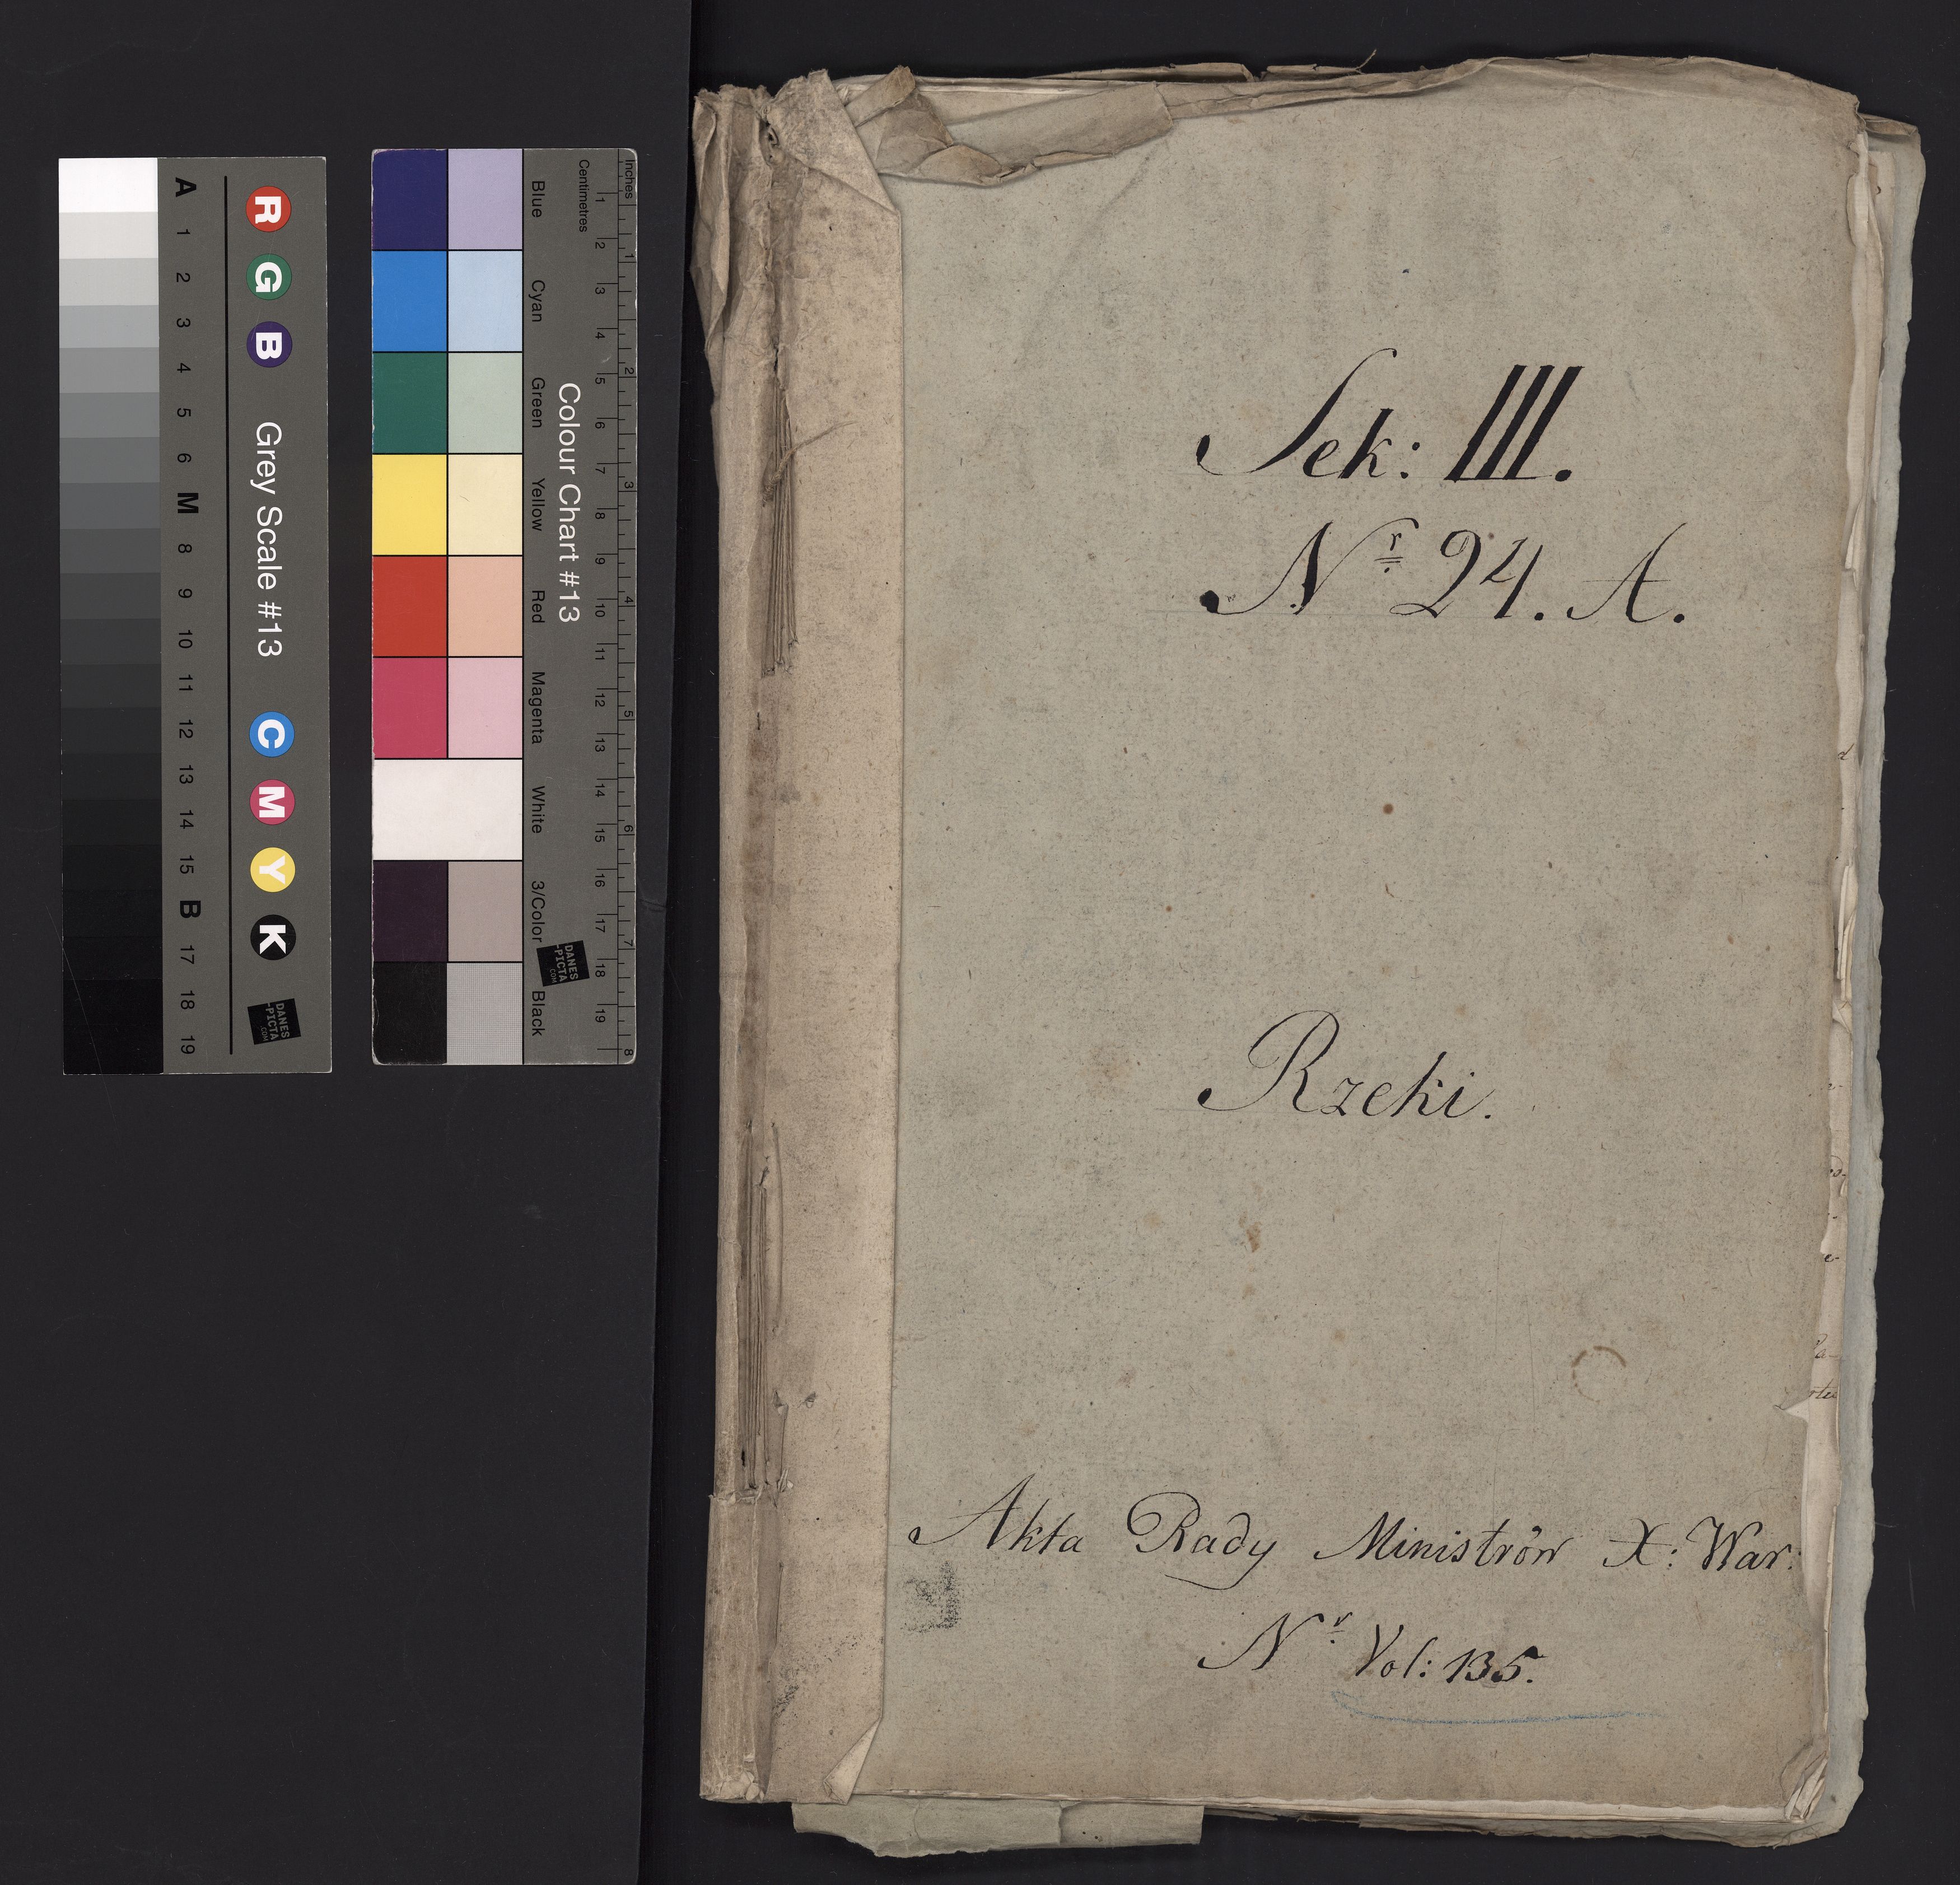 Sek: III.
Nr 24. A.
Rzeki.
Akta Rady Ministrów X: War:
Nr Vol: 135.
A 1 2 3 4 5 6 M 8 9 10 11 12 13 14 15 B 17 18 19
R G B Grey Scale #13 C M Y K
DANES
-PICTA
.COM
Blue Cyan Green Yellow Red Magenta White 3/Color Black
Colour Chart #13
DANES
-PICTA
.COM
Centimetres 1 2 3 4 5 6 7 8 9 10 11 12 13 14 15 16 17 18 19
Inches 1 2 3 4 5 6 7 8